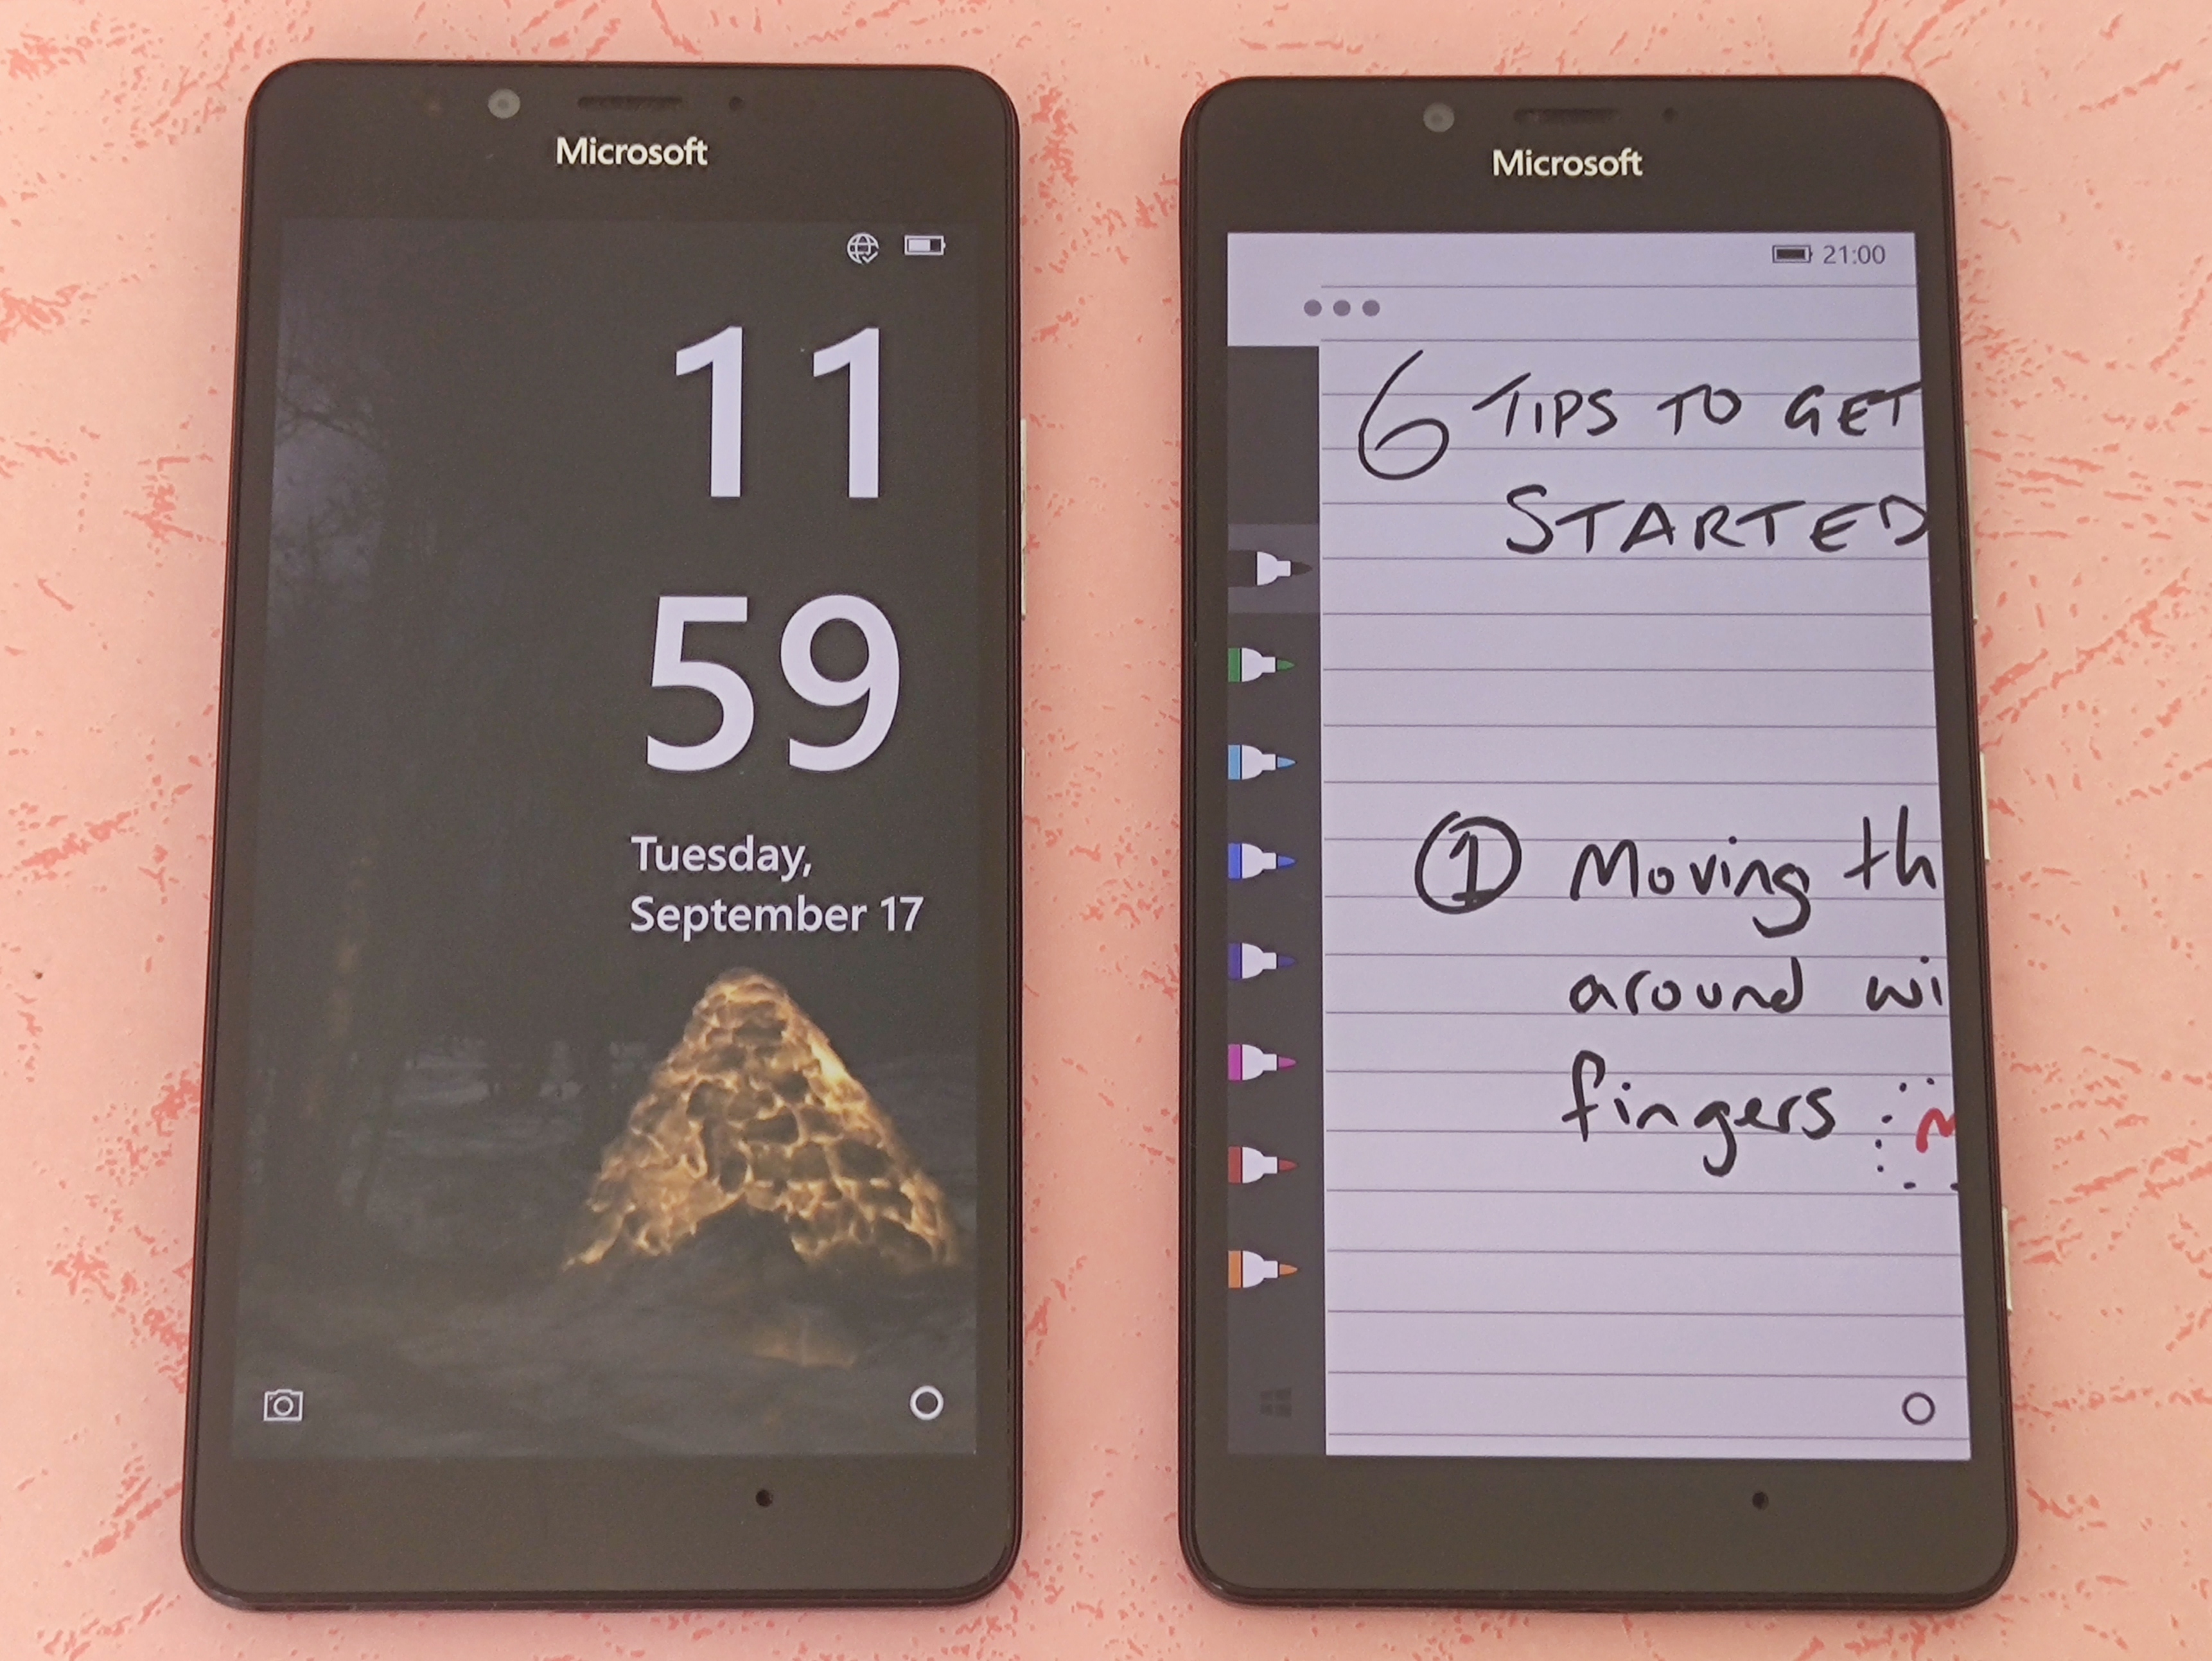 Microsoft
11
59
Tuesday,
September 17
Microsoft
21:00
6 TIPS TO GET
STARTED
1 Moving th
around wi
fingers